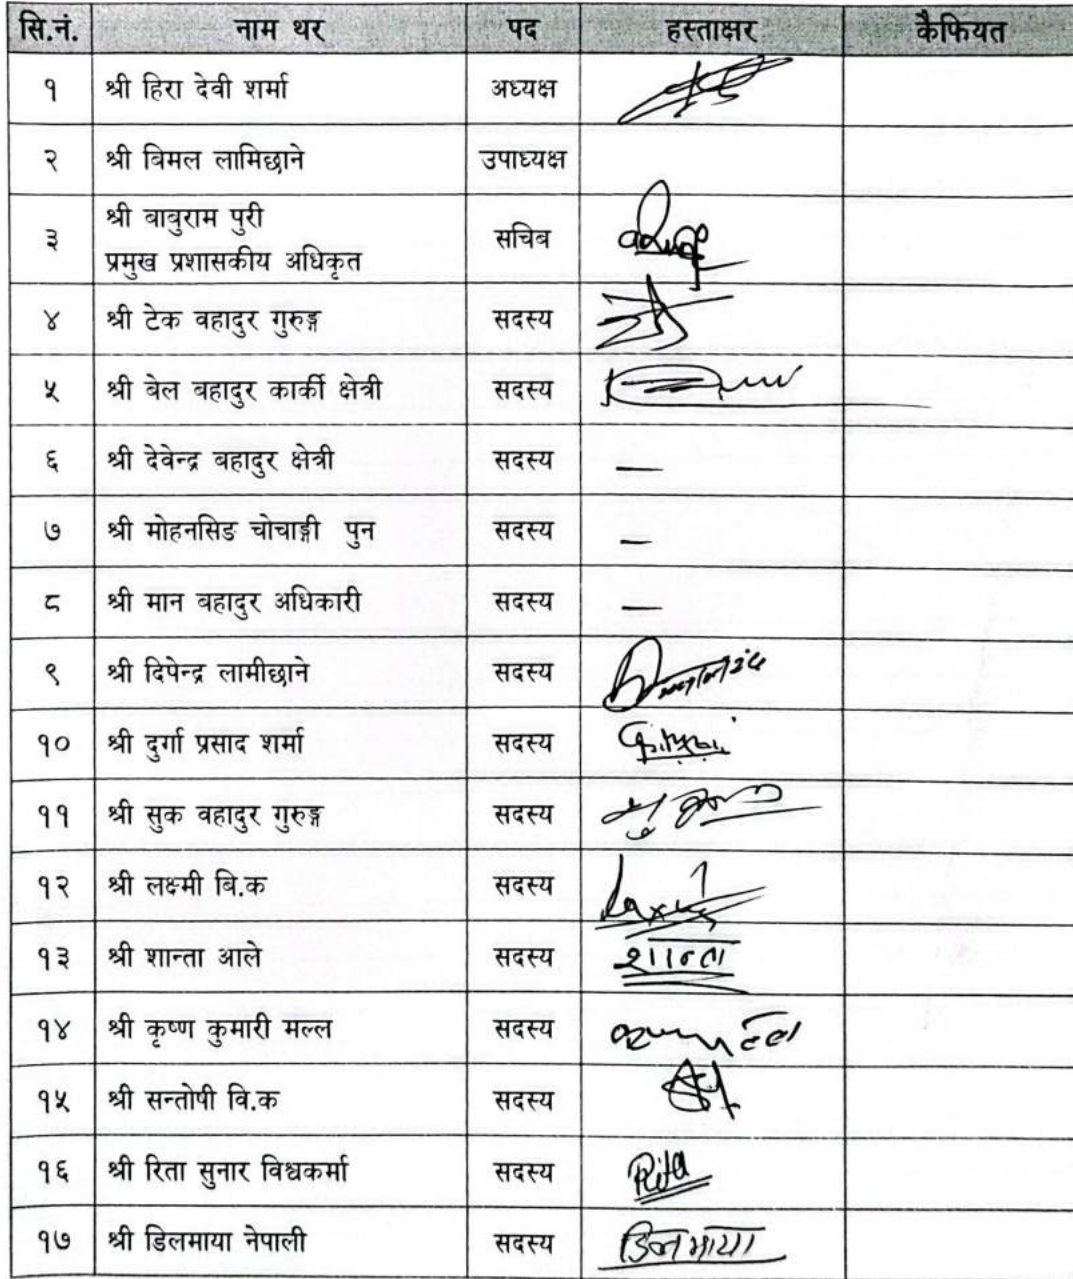 सि.नं. नाम थर पद हस्ताक्षर कैफियत
१ श्री हिरा देवी शर्मा अध्यक्ष
२ श्री बिमल लामिछाने उपाध्यक्ष
३ श्री बाबुराम पुरी सचिब
प्रमुख प्रशासकीय अधिकृत
४ श्री टेक वहादुर गुरुङ्ग सदस्य
५ श्री बेल बहादुर कार्की क्षेत्री सदस्य
६ श्री देवेन्द्र बहादुर क्षेत्री सदस्य –
७ श्री मोहनसिङ चोचाङ्गी पुन सदस्य –
८ श्री मान बहादुर अधिकारी सदस्य –
९ श्री दिपेन्द्र लामीछाने सदस्य
१० श्री दुर्गा प्रसाद शर्मा सदस्य
११ श्री सुक वहादुर गुरुङ्ग सदस्य
१२ श्री लक्ष्मी बि.क सदस्य
१३ श्री शान्ता आले सदस्य शान्ता
१४ श्री कृष्ण कुमारी मल्ल सदस्य
१५ श्री सन्तोषी वि.क सदस्य
१६ श्री रिता सुनार विश्वकर्मा सदस्य Rita
१७ श्री डिलमाया नेपाली सदस्य डिलमाया